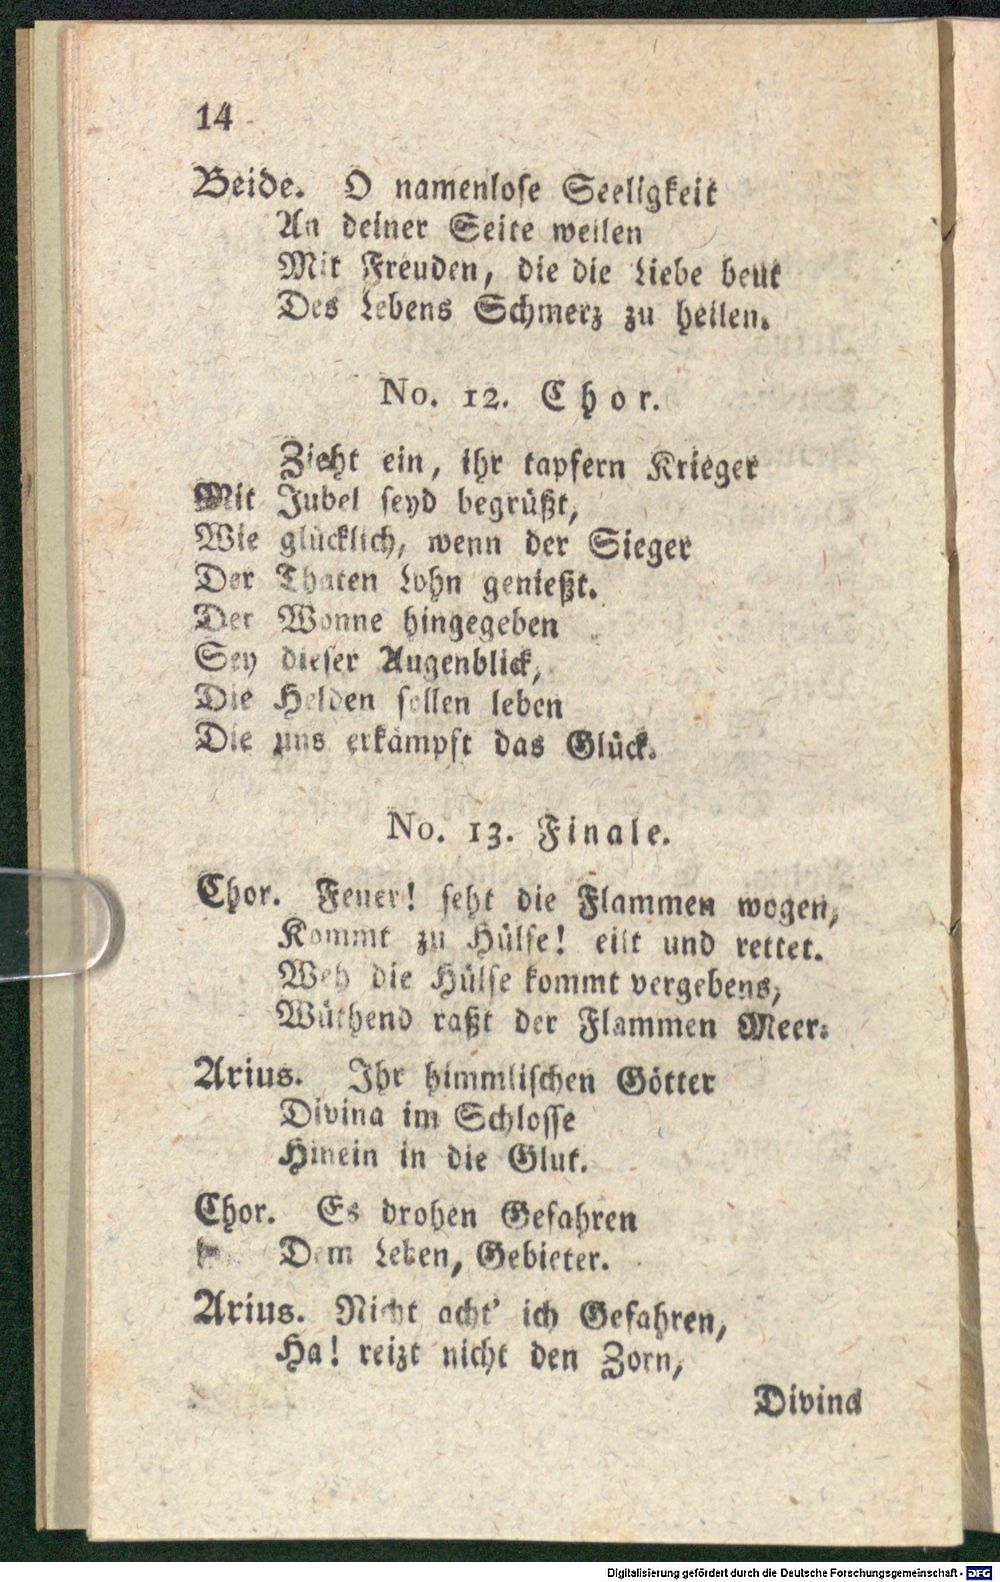 14
Beide. O namenlose Seeligkeit
An deiner Seite weilen
Mit Freuden, die die Liebe beut
Des Lebens Schmerz zu heilen.
No. 12. Chor.
Zieht ein, ihr tapfern Krieger
Mit Jubel seyd begrüßt,
Wie glücklich, wenn der Sieger
Der Thaten Lohn genießt.
Der Wonne hingegeben
Sey dieser Augenblick,
Die Helden sollen leben
Die uns erkämpft das Glück.
No. 13. Finale.
Chor. Feuer! seht die Flammen wogen,
Kommt zu Hülfe! eilt und rettet.
Weh die Hülfe kommt vergebens,
Wüthend raßt der Flammen Meer.
Arius. Ihr himmlischen Götter
Divina im Schlosse
Hinein in die Glut.
Chor. Es drohen Gefahren
Dem Leben, Gebieter.
Arius. Nicht acht' ich Gefahren,
Ha! reizt nicht den Zorn,
Divina
Digitalisierung gefördert durch die Deutsche Forschungsgemeinschaft - DFG